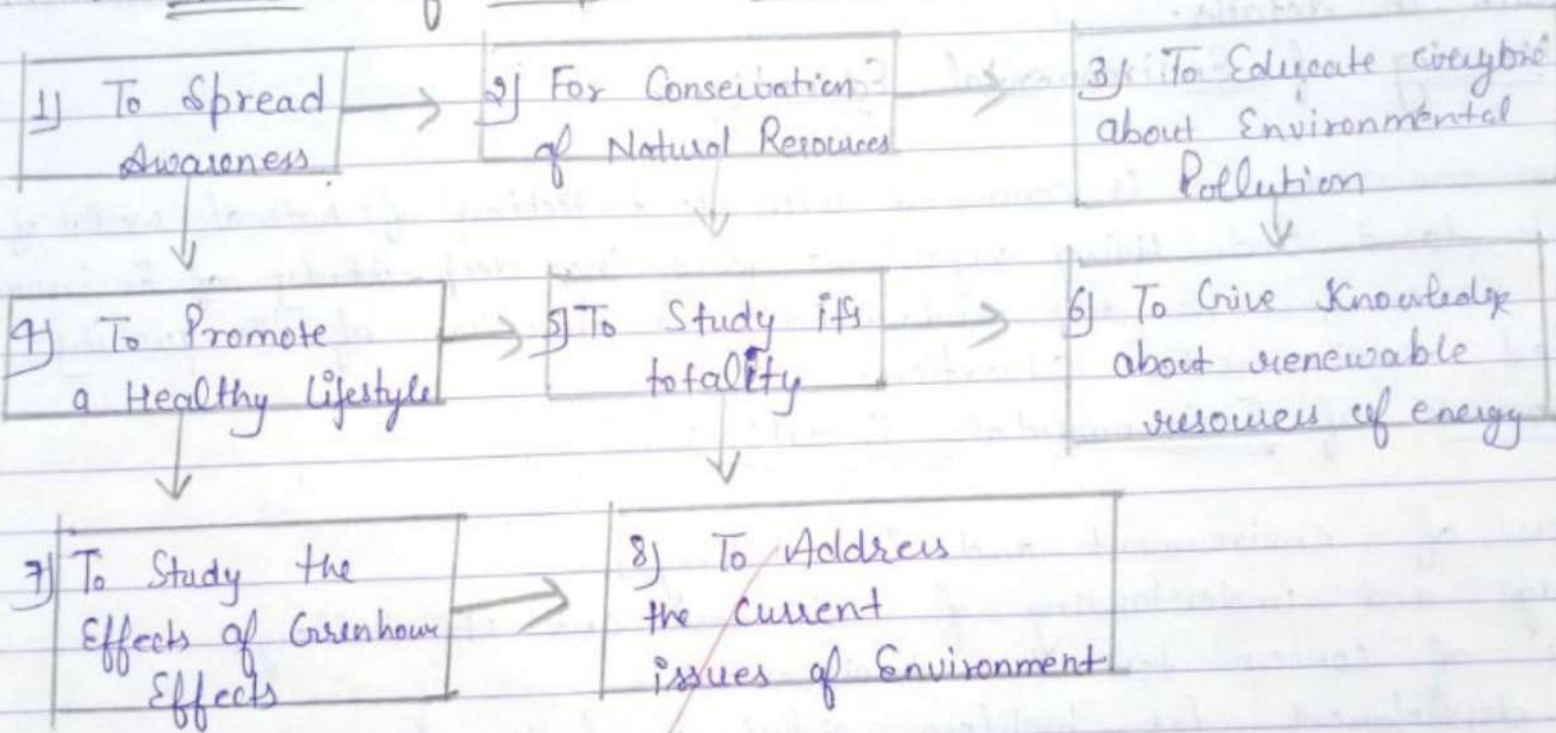 1) To Spread
Awareness
2) For Conservation
of Natural Resources
3) To Educate everybo
about Environmental
Pollution
4) To Promote
a Healthy Lifestyle
5) To Study its
totality
6) To Give Knowledge
about renewable
resources of energy
7) To Study the
Effects of Greenhouse
Effects
8) To Address
the Current
issues of Environment